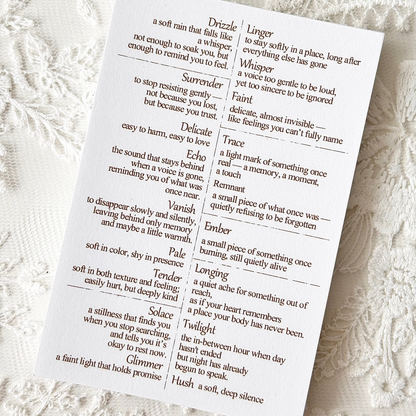 Drizzle
a soft rain that falls like
a whisper,
not enough to soak you, but
enough to remind you to feel.
Surrender
to stop resisting gently —
not because you lost,
but because you trust,
Delicate
easy to harm, easy to love
Echo
the sound that stays behind
when a voice is gone,
reminding you of what was
once near.
Vanish
to disappear slowly and silently,
leaving behind only memory
and maybe a little warmth.
Pale
soft in color, shy in presence
Tender
soft in both texture and feeling;
easily hurt, but deeply kind
Solace
a stillness that finds you
when you stop searching,
and tells you it's
okay to rest now.
Glimmer
a faint light that holds promise
Linger
to stay softly in a place, long after
everything else has gone
Whisper
a voice too gentle to be loud,
yet too sincere to be ignored
Faint
delicate, almost invisible —
like feelings you can't fully name
Trace
a light mark of something once
real — a memory, a moment,
a touch
Remnant
a small piece of what once was —
quietly refusing to be forgotten
Ember
a small piece of something once
burning, still quietly alive
Longing
a quiet ache for something out of
reach,
as if your heart remembers
a place your body has never been.
Twilight
the in-between hour when day
hasn't ended
but night has already
begun to speak.
Hush a soft, deep silence